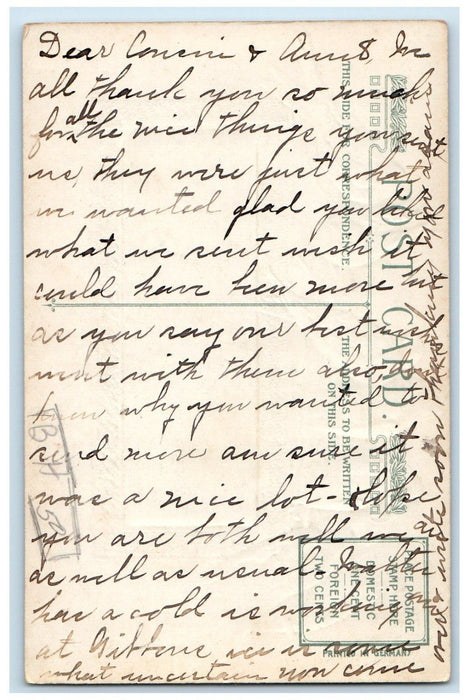 Dear Cousin & Aunt, We
all thank you so much
for all the nice things you sent
us, they were just what
we wanted glad you liked
what we sent wish it
could have been more but
as you say our best wishes
went with them also, don't
know why you wanted to
send more am sure it
was a nice lot - Hope
you are both well we
as well as usual.
has a cold is working
at Gibbons ice is
what uncertain now come
over soon
POST CARD.
THIS SIDE FOR CORRESPONDENCE.
THE ADDRESS TO BE WRITTEN
ON THIS SIDE.
PLACE POSTAGE
STAMP HERE
DOMESTIC
ONE CENT
FOREIGN
TWO CENTS.
PRINTED IN GERMANY